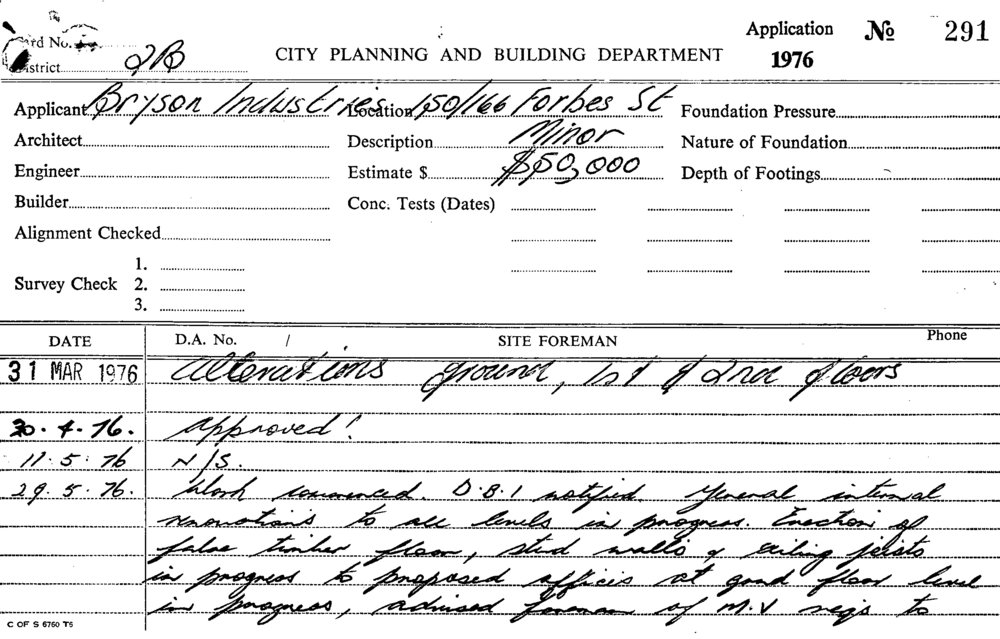 Card No.
District 2B
CITY PLANNING AND BUILDING DEPARTMENT
Application No 291
1976
Applicant Bryson Industries Location 150/166 Forbes St Foundation Pressure
Architect Description Minor Nature of Foundation
Engineer Estimate $ $50,000 Depth of Footings
Builder Conc. Tests (Dates)
Alignment Checked
Survey Check 1.
2.
3.
DATE D.A. No. / SITE FOREMAN Phone
31 MAR 1976 Alterations ground, 1st & 2nd floors
30.4.76. Approved!
11.5.76 N/S.
29.5.76. Work commenced. D.B.I notified General internal
renovations to all levels in progress. Erection of
false timber floor, stud walls & ceiling joists
in progress to proposed offices at gond floor level
in progress, advised foreman of M.V regs to
C OF S 6760 T6